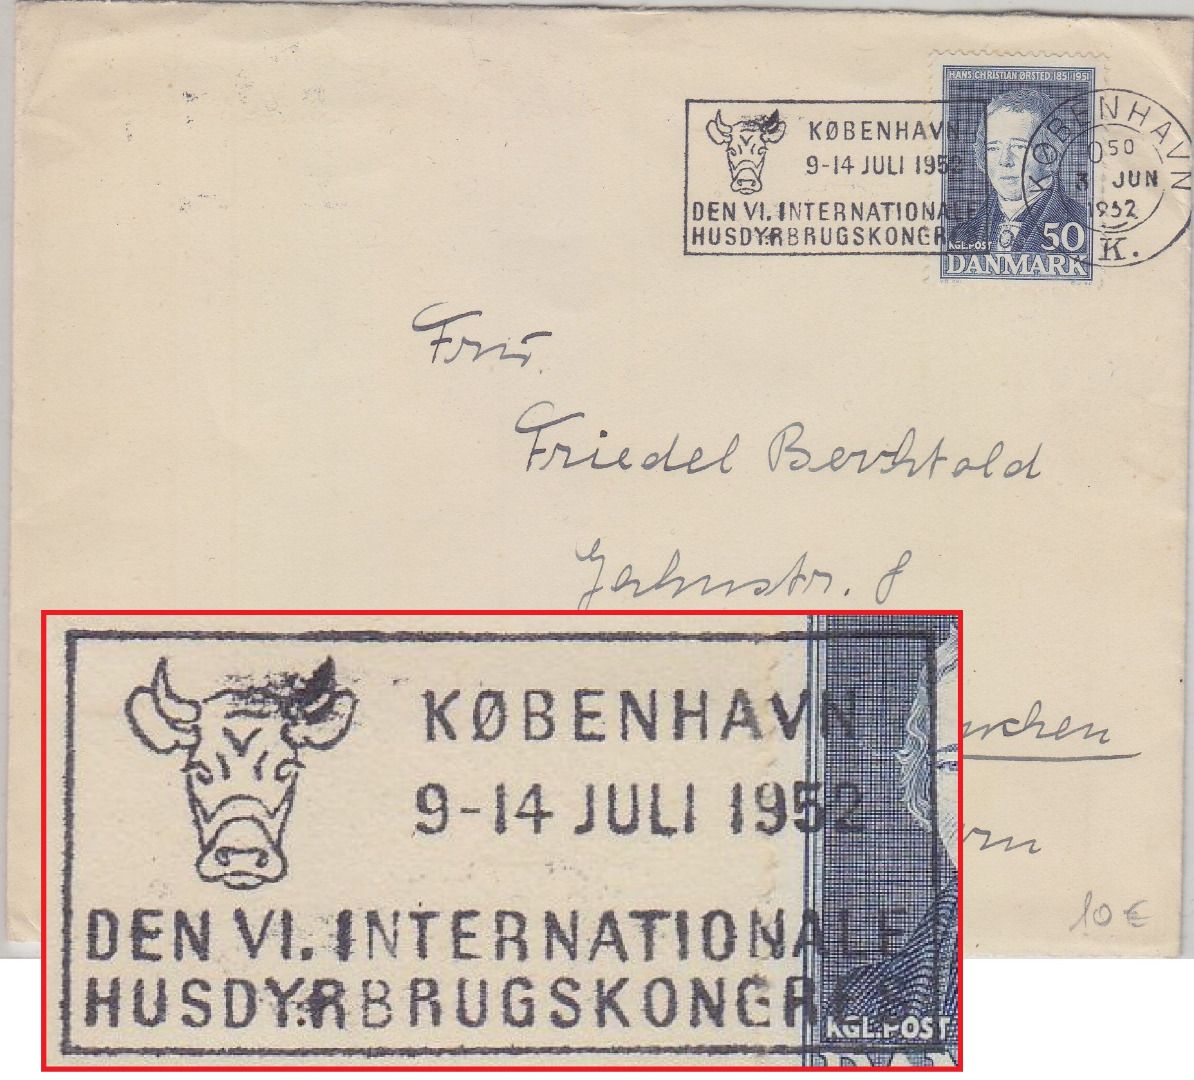 KØBENHAVN
9-14 JULI 1952
DEN VI. INTERNATIONALE
HUSDYRBRUGSKONGRES
HANS CHRISTIAN ØRSTED 1851 1951
KGL. POST
50
DANMARK
KØBENHAVN
050
3 JUN
1952
K.
Frau
Friedel Berchtold
Jahnstr. 8
nchen
rn
10 €
KØBENHAVN
9-14 JULI 1952
DEN VI. INTERNATIONALE
HUSDYRBRUGSKONGRES
KGL. POST